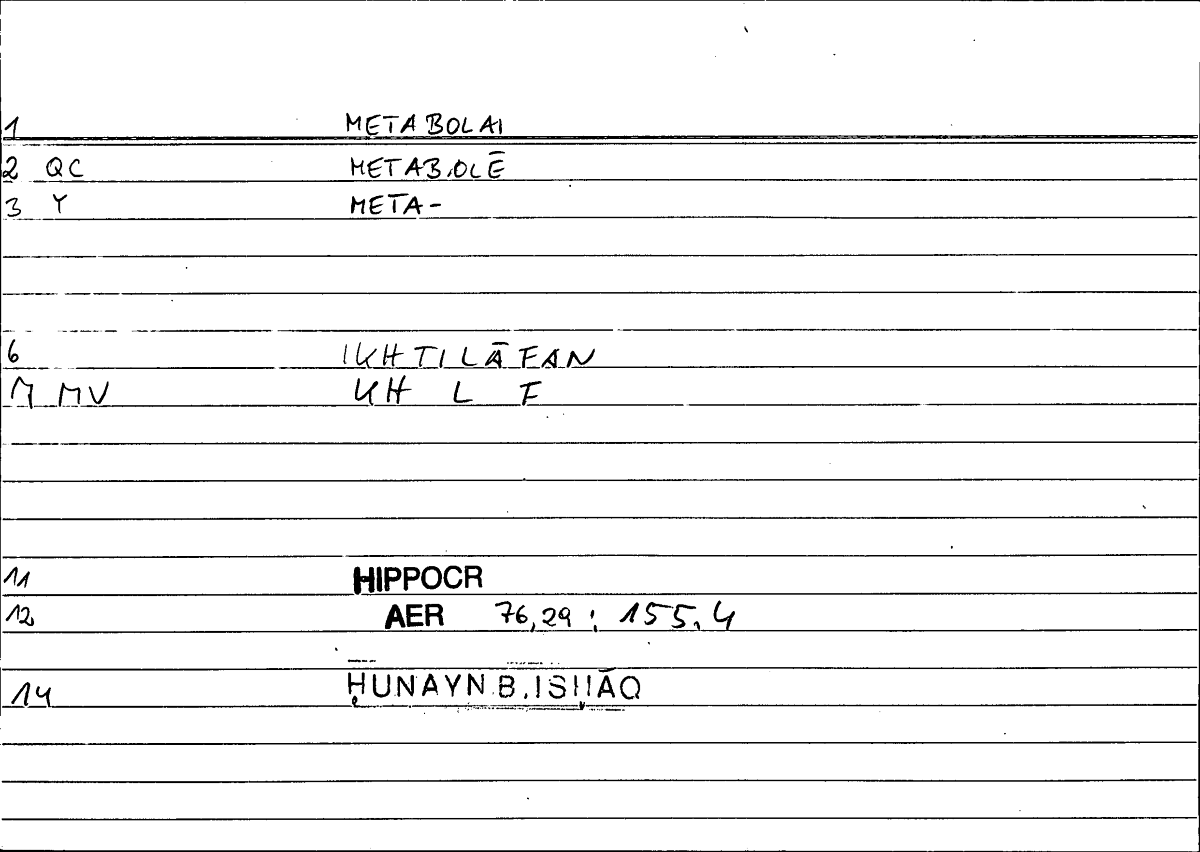 1 METABOLAI
2 QC METABOLĒ
3 Y META-
6 IKHTILĀFAN
7 MV KH L F
11 HIPPOCR
12 AER 76,29 ; 155.4
14 ḤUNAYN B. ISḤĀQ